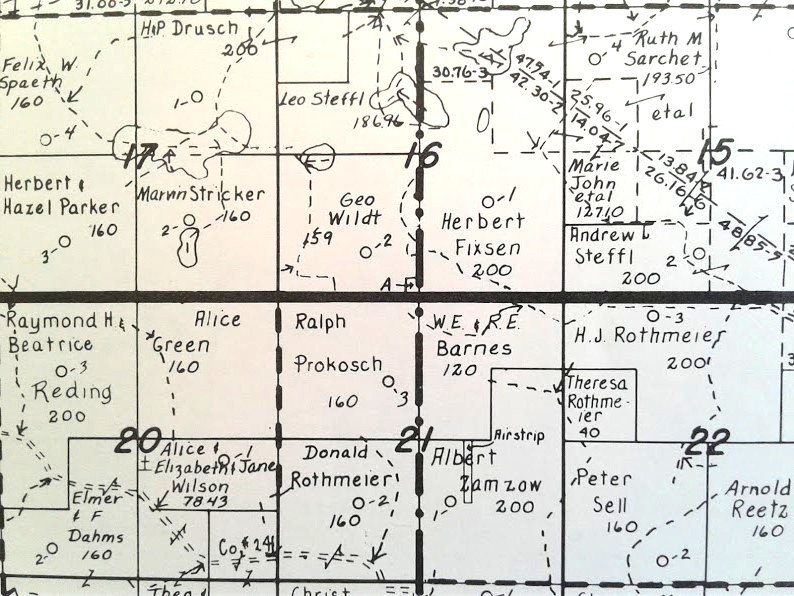 H.P. Drusch
200
Felix W.
Spaeth
160
1
4
17
Leo Steffl
186.96
30.76-3
47.54-1
42.30-2
4
Ruth M
Sarchet
193.50
etal
25.96-1
14.04-7
16
15
13.84
26.16-6
41.62-3
48.85-5
Herbert &
Hazel Parker
160
3
Marvin Stricker
160
2
Geo
Wildt
159
2
A
1
Herbert
Fixsen
200
Marie
John
etal
127.10
Andrew L
Steffl
200
2
Raymond H. &
Beatrice
3
Reding
200
Alice
Green
160
Ralph
Prokosch
160
3
W.E. & R.E.
Barnes
120
3
H.J. Rothmeier
200
Theresa
Rothme-
ier
40
20
21
22
Alice &
Elizabeth & Jane
Wilson
78.43
1
Donald
Rothmeier
2
160
Airstrip
Albert
Zamzow
200
1
Peter
Sell
160
2
Arnold
Reetz
160
Elmer
& F
Dahms
160
2
Co. # 24
Theo
Christ